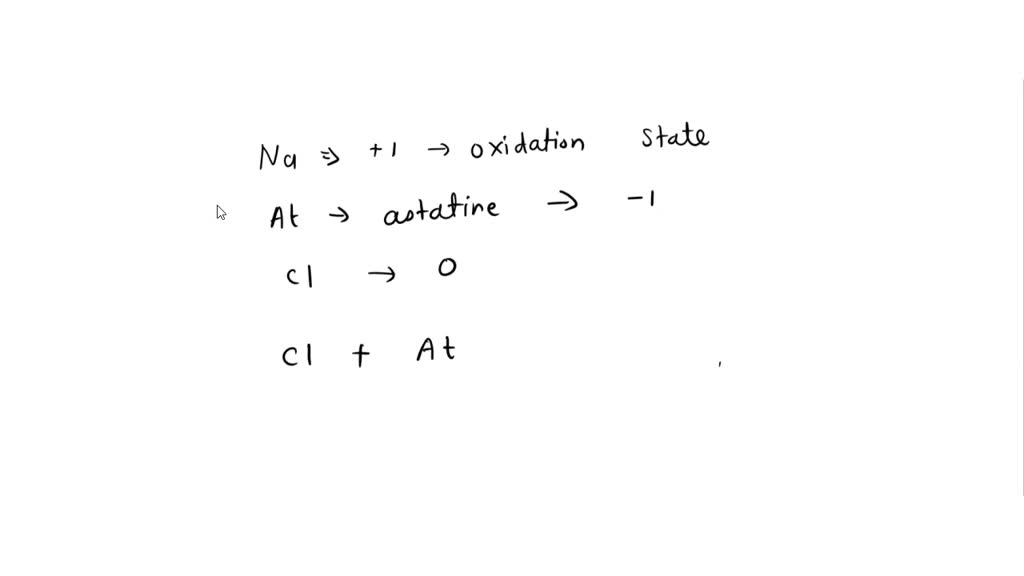 Na ⇒ +1 → oxidation state
At → astatine → -1
Cl → 0
Cl + At